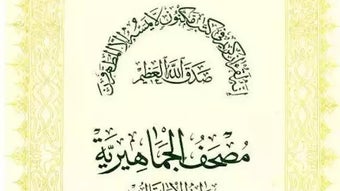 إنه لقرآن كريم في كتاب مكنون لا يمسه إلا المطهرون
صدق الله العظيم
مصحف الجماهيرية